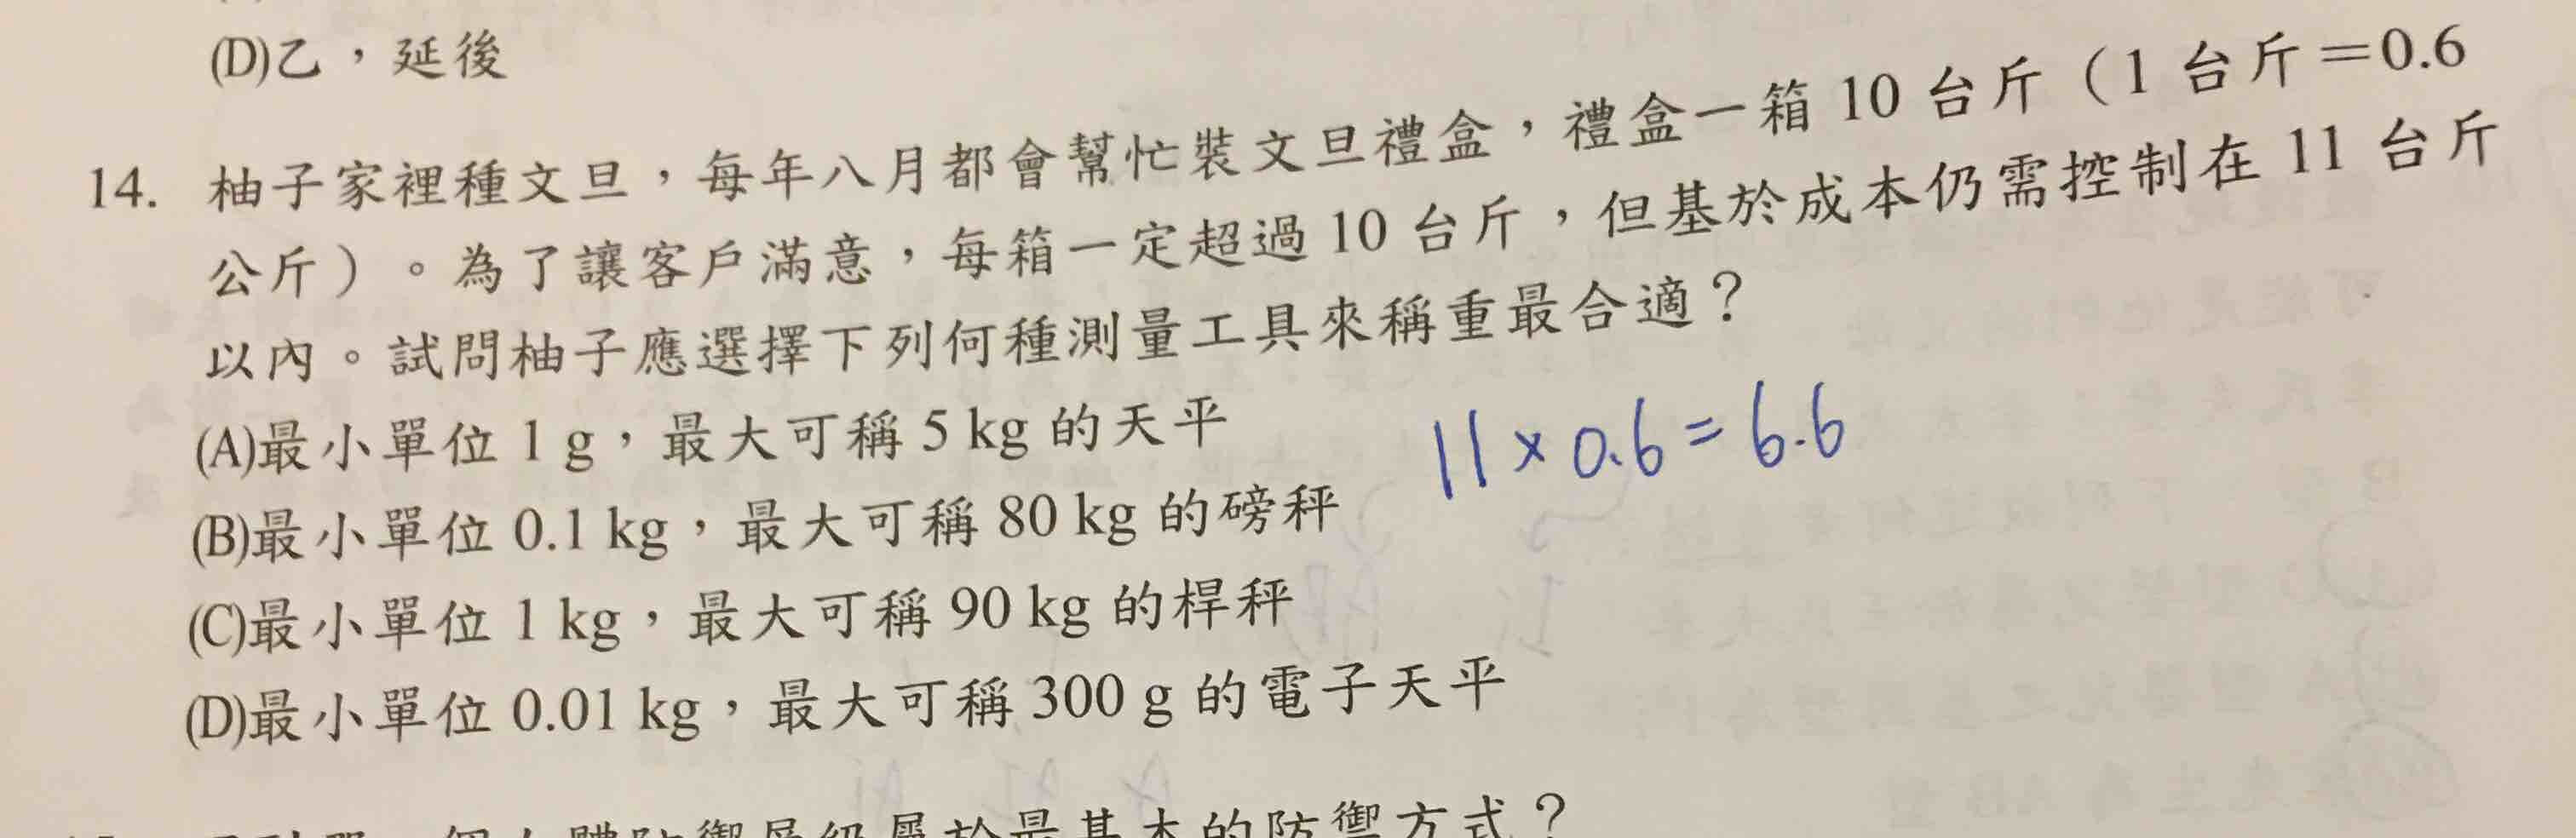 (D)乙，延後
14. 柚子家裡種文旦，每年八月都會幫忙裝文旦禮盒，禮盒一箱 10 台斤（1 台斤＝0.6
公斤）。為了讓客戶滿意，每箱一定超過 10 台斤，但基於成本仍需控制在 11 台斤
以內。試問柚子應選擇下列何種測量工具來稱重最合適？
(A)最小單位 1 g，最大可稱 5 kg 的天平
11 × 0.6 = 6.6
(B)最小單位 0.1 kg，最大可稱 80 kg 的磅秤
(C)最小單位 1 kg，最大可稱 90 kg 的桿秤
(D)最小單位 0.01 kg，最大可稱 300 g 的電子天平
個人體防禦層級屬於最基本的防禦方式？